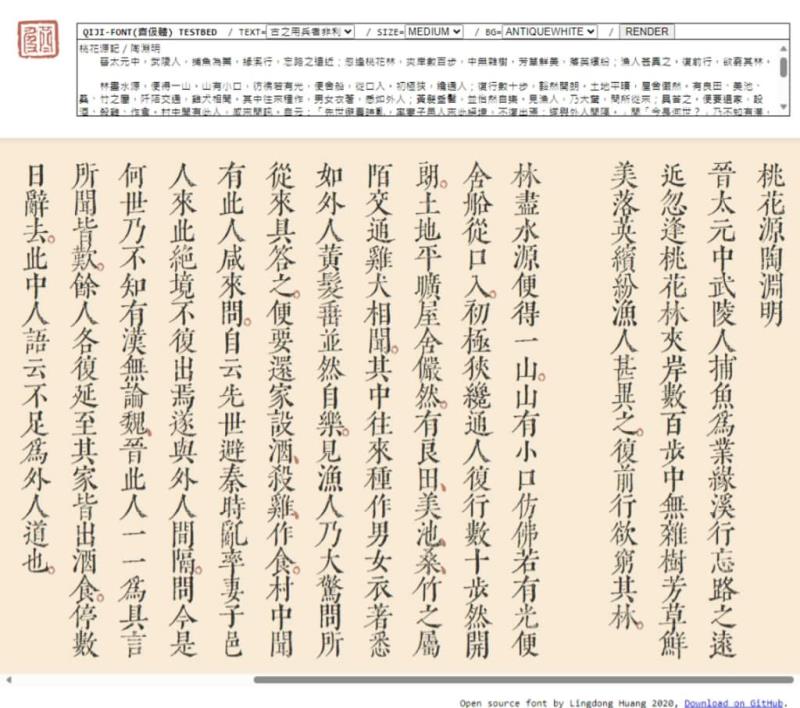 QIJI-FONT(齊伋體) TESTBED / TEXT= 古之用兵者非利 / SIZE= MEDIUM / BG= ANTIQUEWHITE / RENDER
桃花源記 / 陶淵明
晉太元中，武陵人，捕魚為業，緣溪行，忘路之遠近；忽逢桃花林，夾岸數百步，中無雜樹，芳草鮮美，落英繽紛；漁人甚異之。復前行，欲窮其林。
林盡水源，便得一山。山有小口，彷彿若有光，便舍船，從口入。初極狹，纔通人；復行數十步，豁然開朗。土地平曠，屋舍儼然。有良田、美池、
桑、竹之屬，阡陌交通，雞犬相聞。其中往來種作，男女衣著，悉如外人；黃髮垂髫，並怡然自樂。見漁人，乃大驚，問所從來；具答之。便要還家，設
酒、殺雞、作食。村中聞有此人，咸來問訊。自云：「先世避秦時亂，率妻子邑人來此絕境，不復出焉；遂與外人間隔。」問「今是何世？」乃不知有漢，
桃花源陶淵明
晉太元中武陵人捕魚為業緣溪行忘路之遠
近忽逢桃花林夾岸數百步中無雜樹芳草鮮
美落英繽紛漁人甚異之。復前行欲窮其林。
林盡水源便得一山。山有小口仿佛若有光便
舍船從口入。初極狹纔通人復行數十步然開
朗。土地平曠屋舍儼然。有良田、美池、桑、竹之屬
陌交通雞犬相聞。其中往來種作男女衣著悉
如外人黃髮垂並然自樂。見漁人乃大驚問所
從來具答之。便要還家設酒、殺雞、作食。村中聞
有此人咸來問。自云先世避秦時亂率妻子邑
人來此絕境不復出焉遂與外人間隔。問今是
何世乃不知有漢無論魏、晉此人一一為具言
所聞皆歎。餘人各復延至其家皆出酒食。停數
日辭去。此中人語云不足為外人道也。
Open source font by Lingdong Huang 2020, Download on GitHub.